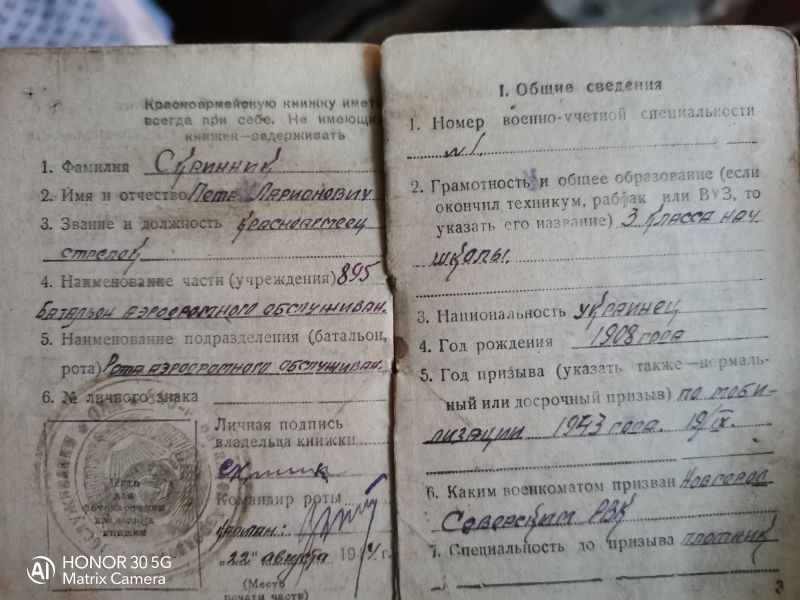 Красноармейскую книжку иметь
всегда при себе. Не имеющих
книжек—задерживать
1. Фамилия Скринник
2. Имя и отчество Петр Ларионович
3. Звание и должность Красноармеец
стрелок
4. Наименование части (учреждения) 895
Батальон аэродромного обслуживан.
5. Наименование подразделения (батальон,
рота) Рота аэродромного обслуживан.
6. № личного знака
Личная подпись
владельца книжки
Место
для
фотокарточки
владельца
книжки
Командир роты
"22" августа 194 г.
(Место
печати части)
I. Общие сведения
1. Номер военно-учетной специальности
№1.
2. Грамотность и общее образование (если
окончил техникум, рабфак или ВУЗ, то
указать его название) 3 класса нач.
школы.
3. Национальность украинец
4. Год рождения 1908 года
5. Год призыва (указать также—нормаль-
ный или досрочный призыв) по моби-
лизации 1943 года. 19/IX.
6. Каким военкоматом призван Новгород
Северским РВК
7. Специальность до призыва плотник
3
HONOR 30 5G
AI Matrix Camera